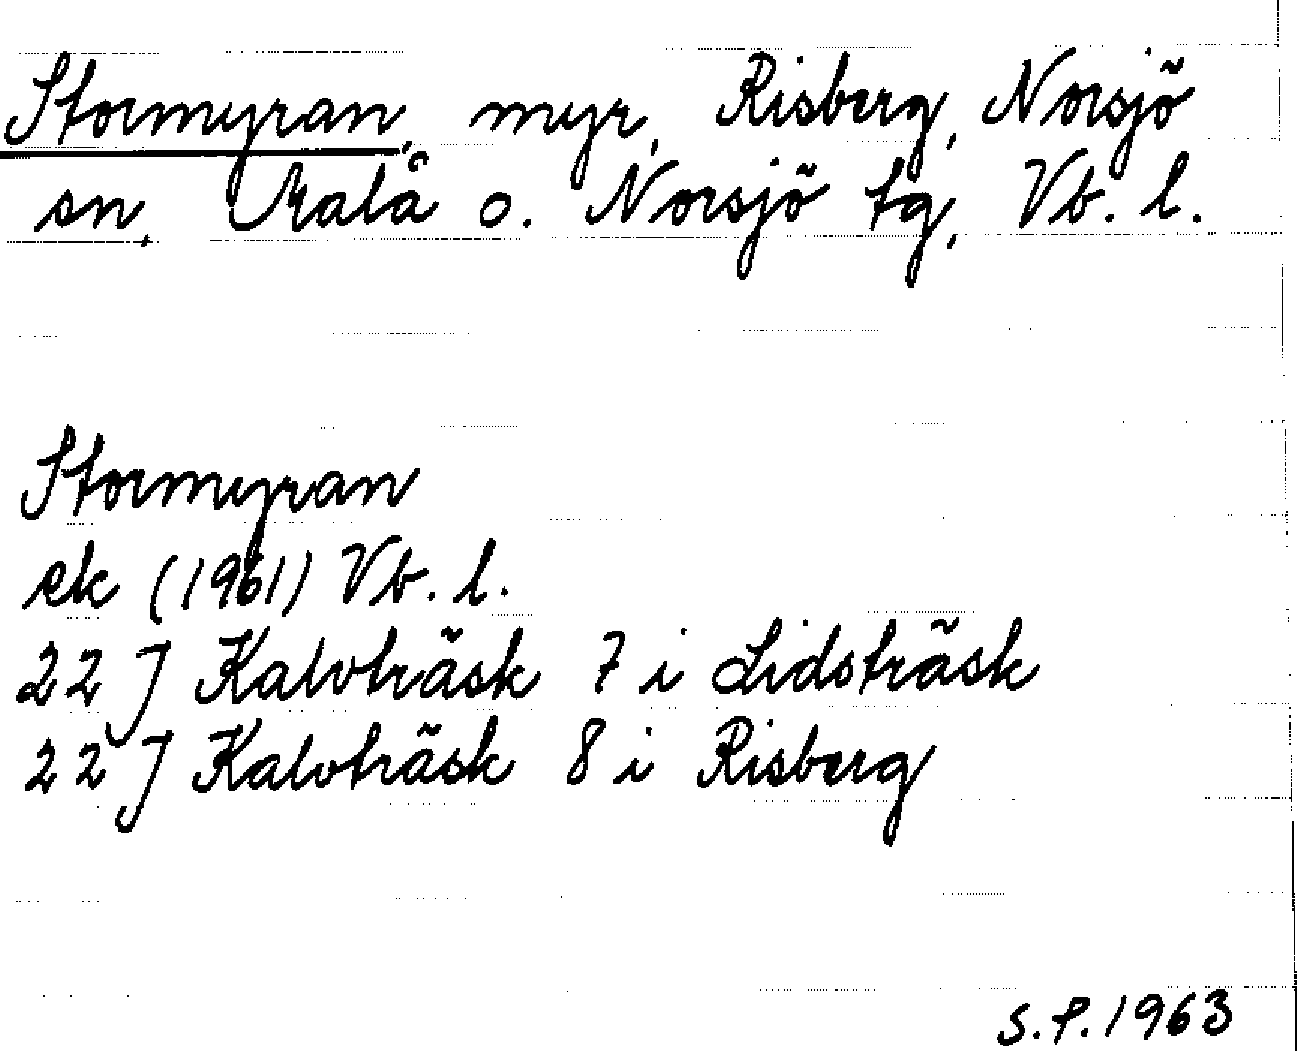 Stormyran, myr, Risberg, Norsjö
sn, Malå o. Norsjö tg, Vb. l.
Stormyran
ek (1961) Vb. l.
22 J Kalvträsk 7 i Lidsträsk
22 J Kalvträsk 8 i Risberg
S.P. 1963